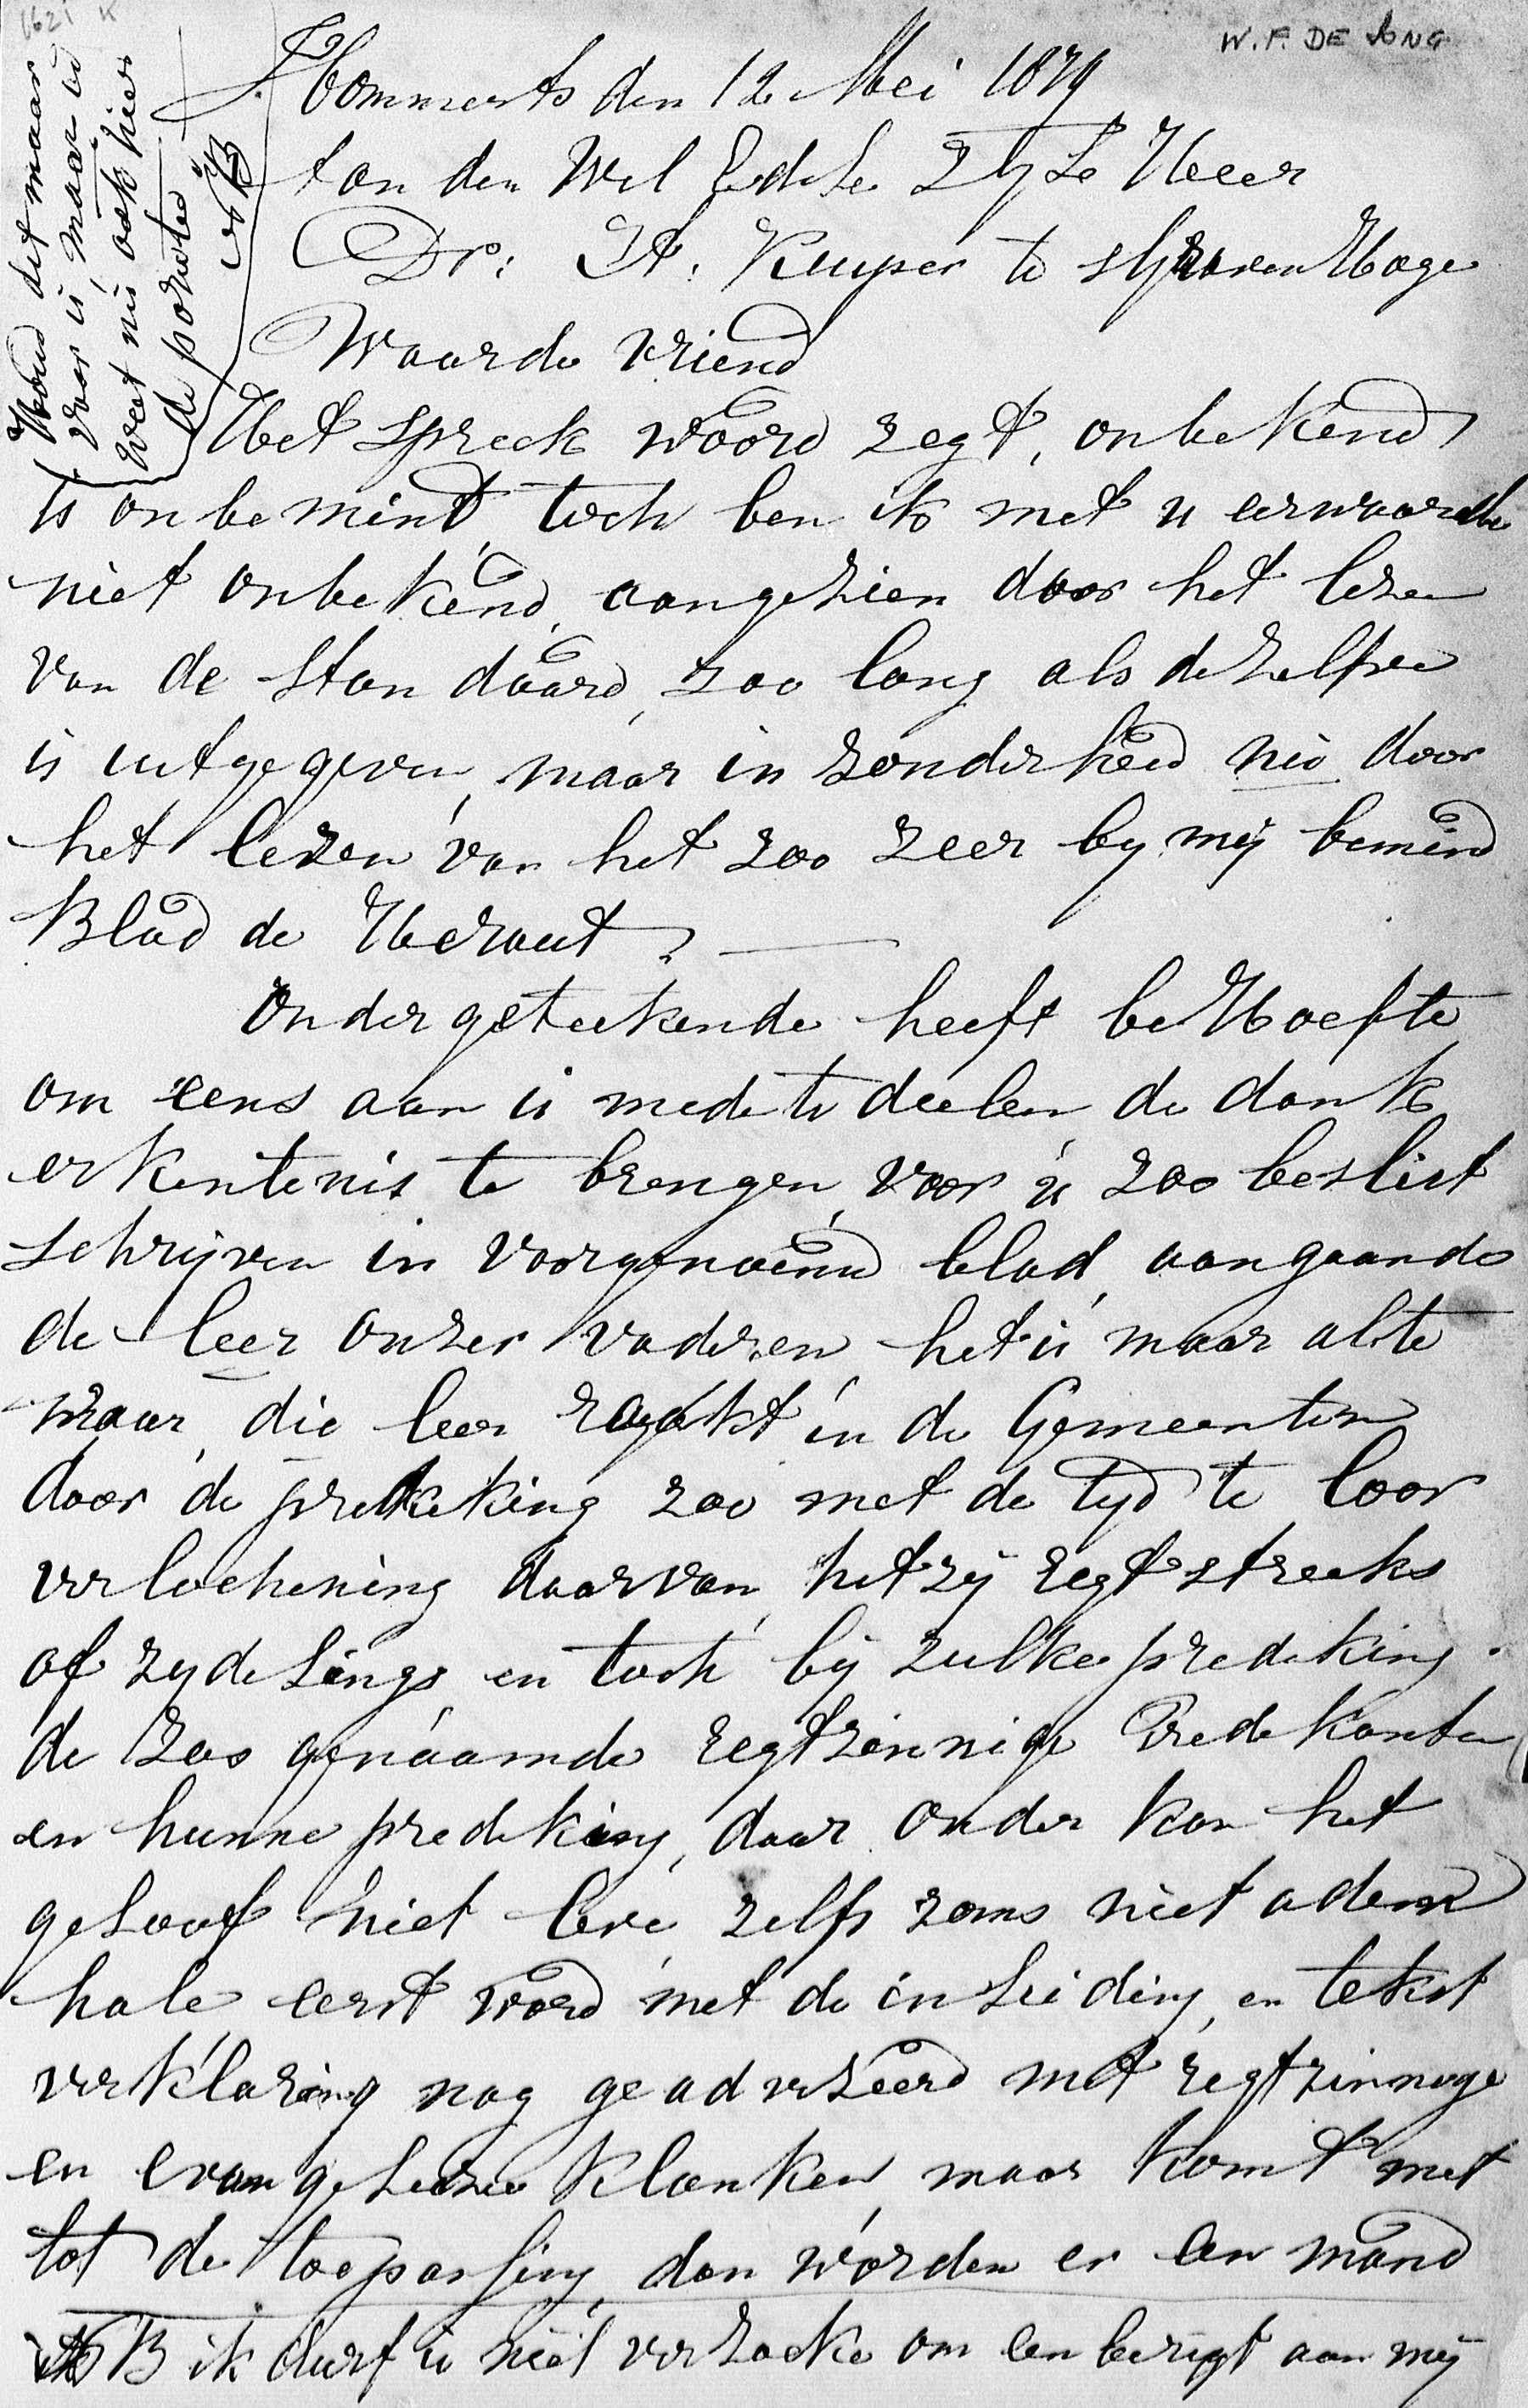 1621 K
W. F. DE JONG
Houd dit maar
voor u, maar u
weet nu ook hier
de portretten
NB
Hommerts den 12 Mei 1879
Aan den Wel Edele Zy Le Heer
Dr: A. Kuyper te sGraven Hage
Waarde vriend
Het spreek woord zegt, onbekend,
is onbemind, toch ben ik met u eerwaarde
niet onbekend, aangezien door het lezen
van de standaard, zoo lang als dezelfve
is uitgegeven, maar in zonderheid nu door
het lezen van het zoo zeer by mij bemind
Blad de Heraut,
Ondergeteekende heeft beHoefte
om eens aan u mede te deelen de dank
erkentenis te brengen, voor u zoo beslist
schrijven in voorgenoemd blad, aangaande
de leer onzer vaderen, het is maar al te
waar, die leer raakt in de Gemeenten
door de predeking zoo met de tyd te loor
verlochening daarvan, het zij regtstreeks
of zydelings, en toch bij zulke predeking
de zoo genaamde regtzinnige Predekanten
en hunne predeking, daar onder kan het
geloof niet leve, zelfs zoms niet adem
hale eerst word met de inleiding, en tekst
verklaring nog geadverzeerd met regtzinnege
en evangeliese klanken maar komt met
tot de toepassing, dan worden er een mand
NB ik durf u niet verzoeke om een berigt aan mij